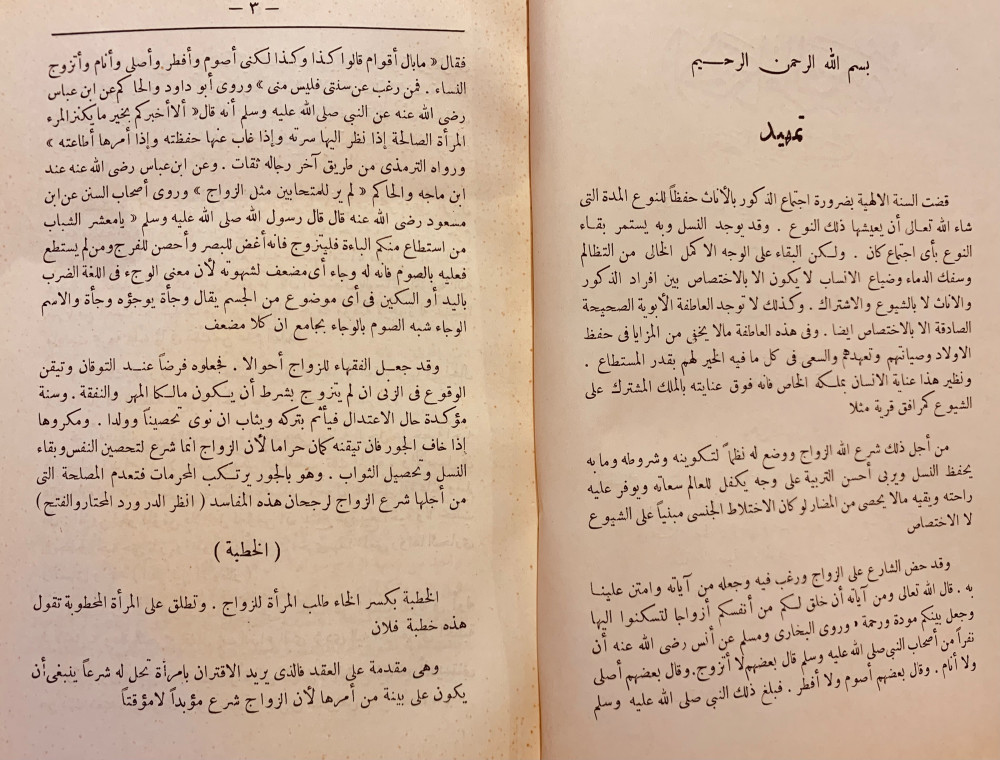 بسم الله الرحمن الرحيم
تمهيد
قضت السنة الالهية بضرورة اجتماع الذكور بالأناث حفظاً للنوع المدة التى
شاء الله تعالى أن يعيشها ذلك النوع . وقد يوجد النسل وبه يستمر بقاء
النوع بأى اجتماع كان . ولكن البقاء على الوجه الاكمل الخالى من التظالم
وسفك الدماء وضياع الانساب لا يكون الا بالاختصاص بين افراد الذكور
والاناث لا بالشيوع والاشتراك . وكذلك لا توجد العاطفة الأبوية الصحيحة
الصادقة الا بالاختصاص ايضا . وفى هذه العاطفة مالا يخفى من المزايا فى حفظ
الاولاد وصيانتهم وتعهدهم والسعى فى كل ما فيه الخير لهم بقدر المستطاع .
ونظير هذا عناية الانسان بملكه الخاص فانه فوق عنايته بالملك المشترك على
الشيوع كمرافق قرية مثلا
من أجل ذلك شرع الله الزواج ووضع له نظماً لتكوينه وشروطه وما به
يحفظ النسل ويربى أحسن التربية على وجه يكفل للعالم سعاته ويوفر عليه
راحته وبقيه مالا يحصى من المضار لو كان الاختلاط الجنسى مبنياً على الشيوع
لا الاختصاص
وقد حض الشارع على الزواج ورغب فيه وجعله من آياته وامتن علينا
به . قال الله تعالى ومن آياته أن خلق لكم من أنفسكم أزواجا لتسكنوا اليها
وجعل بينكم مودة ورحمة . وروى البخارى ومسلم عن أنس رضى الله عنه أن
نفراً من أصحاب النبى صلى الله عليه وسلم قال بعضهم لا أتزوج. وقال بعضهم أصلى
ولا أنام . وقال بعضهم أصوم ولا أفطر . فبلغ ذلك النبى صلى الله عليه وسلم
— ٣ —
فقال « مابال أقوام قالوا كذا وكذا لكنى أصوم وأفطر وأصلى وأنام وأتزوج
النساء . فمن رغب عن سنتى فليس منى » وروى أبو داود والحاكم عن ابن عباس
رضى الله عنه عن النبى صلى الله عليه وسلم أنه قال « ألا أخبركم بخير ما يكنز المرء
المرأة الصالحة إذا نظر اليها سرته وإذا غاب عنها حفظته وإذا أمرها أطاعته »
ورواه الترمذى من طريق آخر رجاله ثقات . وعن ابن عباس رضى الله عنه عند
ابن ماجه والحاكم « لم ير للمتحابين مثل الزواج » وروى أصحاب السنن عن ابن
مسعود رضى الله عنه قال قال رسول الله صلى الله عليه وسلم « يامعشر الشباب
من استطاع منكم الباءة فليتزوج فانه أغض للبصر وأحصن للفرج ومن لم يستطع
فعليه بالصوم فانه له وجاء أى مضعف لشهوته لأن معنى الوجء فى اللغة الضرب
باليد أو السكين فى أى موضوع من الجسم يقال وجأة يوجؤه وجأة والاسم
الوجاء شبه الصوم بالوجاء بجامع ان كلا مضعف
وقد جعل الفقهاء للزواج أحوالا . فجعلوه فرضاً عند التوقان وتيقن
الوقوع فى الزنى ان لم يتزوج بشرط أن يكون مالكا المهر والنفقة . وسنة
مؤكدة حال الاعتدال فيأثم بتركه ويثاب ان نوى تحصيناً وولدا . ومكروها
إذا خاف الجور فان تيقنه كان حراما لأن الزواج انما شرع لتحصين النفس وبقاء
النسل وتحصيل الثواب . وهو بالجور يرتكب المحرمات فتعدم المصلحة التى
من أجلها شرع الزواج لرجحان هذه المفاسد ( انظر الدر ورد المحتار والفتح )
( الخطبة )
الخطبة بكسر الخاء طلب المرأة للزواج . وتطلق على المرأة المخطوبة تقول
هذه خطبة فلان
وهى مقدمة على العقد فالذى يريد الاقتران بامرأة تحل له شرعاً ينبغى أن
يكون على بينة من أمرها لأن الزواج شرع مؤبداً لامؤقتاً